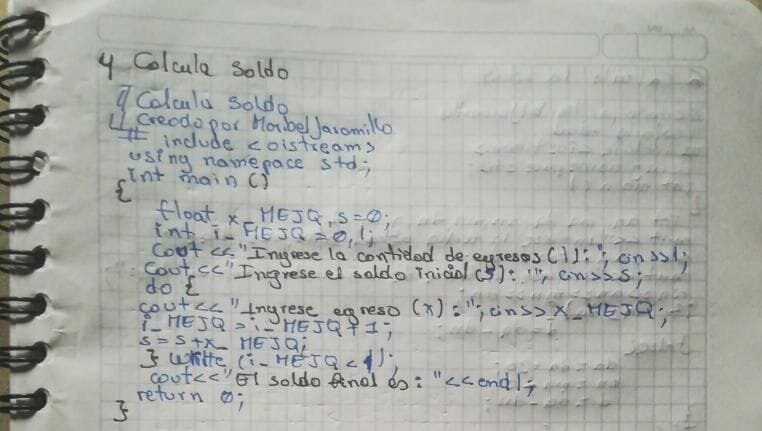 4 Calcula Soldo
// Calcula Soldo
// Creado por Maribel Jaramillo
# include <oistream>
using namepace std;
int main ()
{
float x_MEJQ, s=0;
int i_MEJQ=0, l;
cout << "Ingrese la contidad de egresos (l):"; cin>>l;
cout << "Ingrese el soldo inicial (s): "; cin>>s;
do {
cout << "Ingrese egreso (x) :"; cin>> x_MEJQ;
i_MEJQ = i_MEJQ + 1;
s = s+x_MEJQ;
} while (i_MEJQ < l);
cout<<"El soldo final es: "<<endl;
return 0;
}